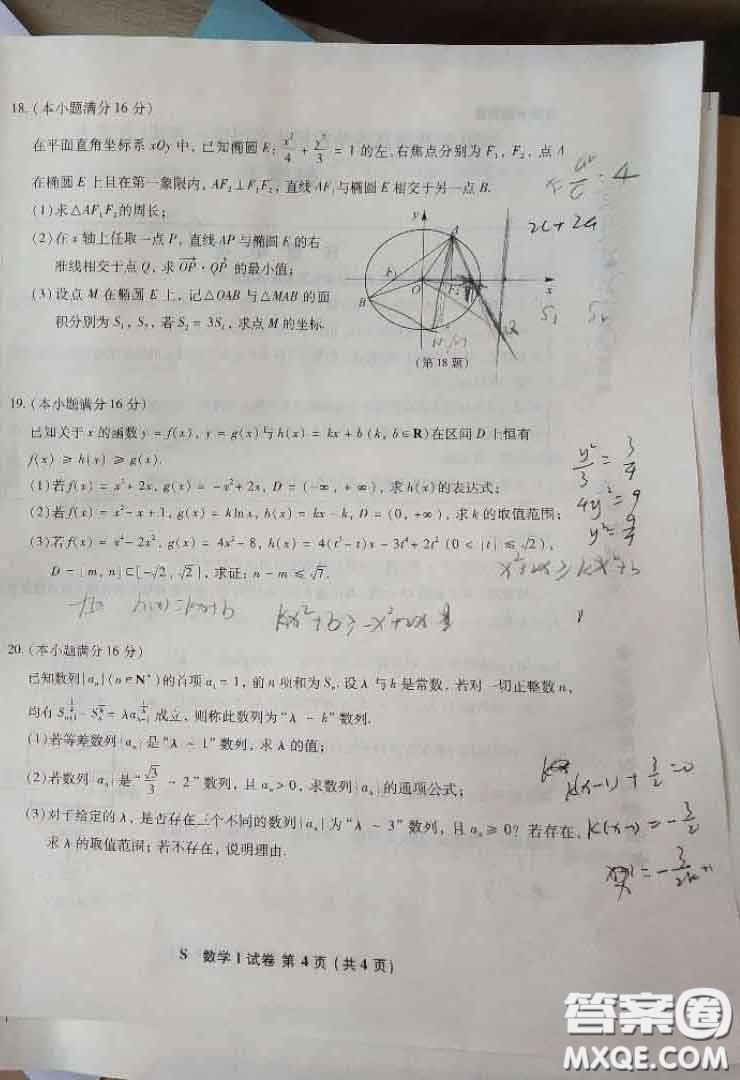 18. (本小题满分16分)
在平面直角坐标系 xOy 中, 已知椭圆 E: x²/4 + y²/3 = 1 的左、右焦点分别为 F₁, F₂, 点 A
在椭圆 E 上且在第一象限内, AF₂⊥F₁F₂, 直线 AF₁ 与椭圆 E 相交于另一点 B.
(1)求△AF₁F₂的周长;
(2)在 x 轴上任取一点 P, 直线 AP 与椭圆 E 的右
准线相交于点 Q, 求 OP→·QP→ 的最小值;
(3)设点 M 在椭圆 E 上, 记△OAB 与△MAB 的面
积分别为 S₁, S₂, 若 S₂ = 3S₁, 求点 M 的坐标.
4
2c+2a
y
A
F₁
O
F₂
x
B
Q
S₁
(第18题)
19. (本小题满分16分)
已知关于 x 的函数 y = f(x), y = g(x) 与 h(x) = kx + b (k, b∈R) 在区间 D 上恒有
f(x) ≥ h(x) ≥ g(x).
(1)若 f(x) = x²+2x, g(x) = -x²+2x, D = (-∞, +∞), 求 h(x) 的表达式;
(2)若 f(x) = x²-x+1, g(x) = klnx, h(x) = kx-k, D = (0, +∞), 求 k 的取值范围;
(3)若 f(x) = x⁴-2x², g(x) = 4x²-8, h(x) = 4(t³-t)x-3t⁴+2t² (0 < |t| ≤ √2),
D = [m, n]⊂[-√2, √2], 求证: n-m ≤ √7.
y²/3 = 3/4
4y² = 9
y² = 9/4
x²+2x ≥ kx²+b
h(x)=kx+b
kx²+b ≥ -x²+2x
20. (本小题满分16分)
已知数列{aₙ}(n∈N*)的首项 a₁ = 1, 前 n 项和为 Sₙ. 设 λ 与 k 是常数. 若对一切正整数 n,
均有 Sₙ₊₁^(1/k) - Sₙ^(1/k) = λaₙ₊₁^(1/k) 成立, 则称此数列为“λ ~ k”数列.
(1)若等差数列{aₙ}是“λ ~ 1”数列, 求 λ 的值;
(2)若数列{aₙ}是“√3/3 ~ 2”数列, 且 aₙ>0, 求数列{aₙ}的通项公式;
(3)对于给定的 λ, 是否存在三个不同的数列{aₙ}为“λ ~ 3”数列, 且 aₙ≥0? 若存在,
求 λ 的取值范围; 若不存在, 说明理由.
k(x-1) + 3/2 = 0
k(x-1) = -3/2
S 数学Ⅰ试卷 第4页(共4页)
答案圈
MXQE.COM